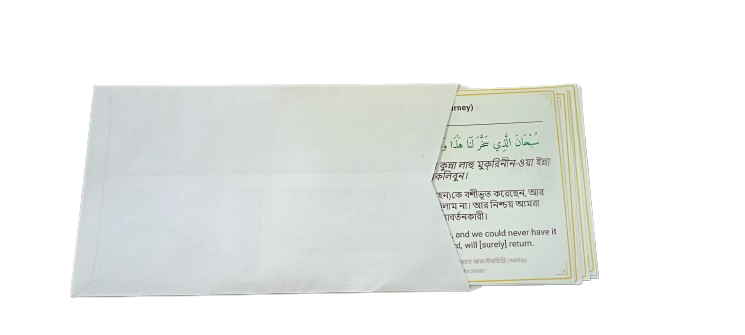 rney)
سُبْحَانَ الَّذِي سَخَّرَ لَنَا هَٰذَا
কুন্না লাহু মুক্বরিনীন-ওয়া ইন্না
কলিবুন।
হন)কে বশীভূত করেছেন, আর
লাম না। আর নিশ্চয় আমরা
বর্তনকারী।
, and we could never have it
rd, will [surely] return.